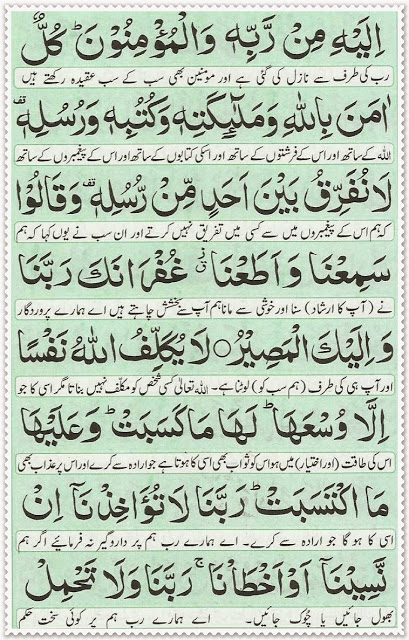 اِلَیْهِ مِنْ رَّبِّهٖ وَالْمُؤْمِنُوْنَ ؕ كُلٌّ
رب کی طرف سے نازل کی گئی ہے اور مومنین بھی سب کے سب عقیدہ رکھتے ہیں
اٰمَنَ بِاللّٰهِ وَمَلٰٓئِكَتِهٖ وَكُتُبِهٖ وَرُسُلِهٖ ۟ قف
اللہ کے ساتھ اور اس کے فرشتوں کے ساتھ اور اسکی کتابوں کے ساتھ اور اس کے پیغمبروں کے ساتھ
لَا نُفَرِّقُ بَیْنَ اَحَدٍ مِّنْ رُّسُلِهٖ ۟ قف وَقَالُوْا
کہ ہم اس کے پیغمبروں میں سے کسی میں تفریق نہیں کرتے اور ان سب نے یوں کہا کہ ہم
سَمِعْنَا وَاَطَعْنَا ۫ غُفْرَانَكَ رَبَّنَا
نے (آپ کا ارشاد) سنا اور خوشی سے مانا ہم آپ سے بخشش چاہتے ہیں اے ہمارے پروردگار
وَاِلَیْكَ الْمَصِیْرُ ○ لَا یُكَلِّفُ اللّٰهُ نَفْسًا
اور آپ ہی کی طرف (ہم سب کو) لوٹنا ہے۔ اللہ تعالیٰ کسی شخص کو مکلف نہیں بناتا مگر اسی کا جو
اِلَّا وُسْعَهَا ؕ لَهَا مَا كَسَبَتْ وَعَلَیْهَا
اس کی طاقت (اور اختیار) میں ہو اس کو ثواب بھی اسی کا ہوتا ہے جو ارادہ سے کرے اور اس پر عذاب بھی
مَا اكْتَسَبَتْ ؕ رَبَّنَا لَا تُؤَاخِذْنَاۤ اِنْ
اسی کا ہو گا جو ارادہ سے کرے۔ اے ہمارے رب ہم پر داروگیر نہ فرمائیے اگر ہم
نَّسِیْنَاۤ اَوْ اَخْطَاْنَا ۚ رَبَّنَا وَلَا تَحْمِلْ
بھول جائیں یا چُوک جائیں۔ اے ہمارے رب ہم پر کوئی سخت حکم